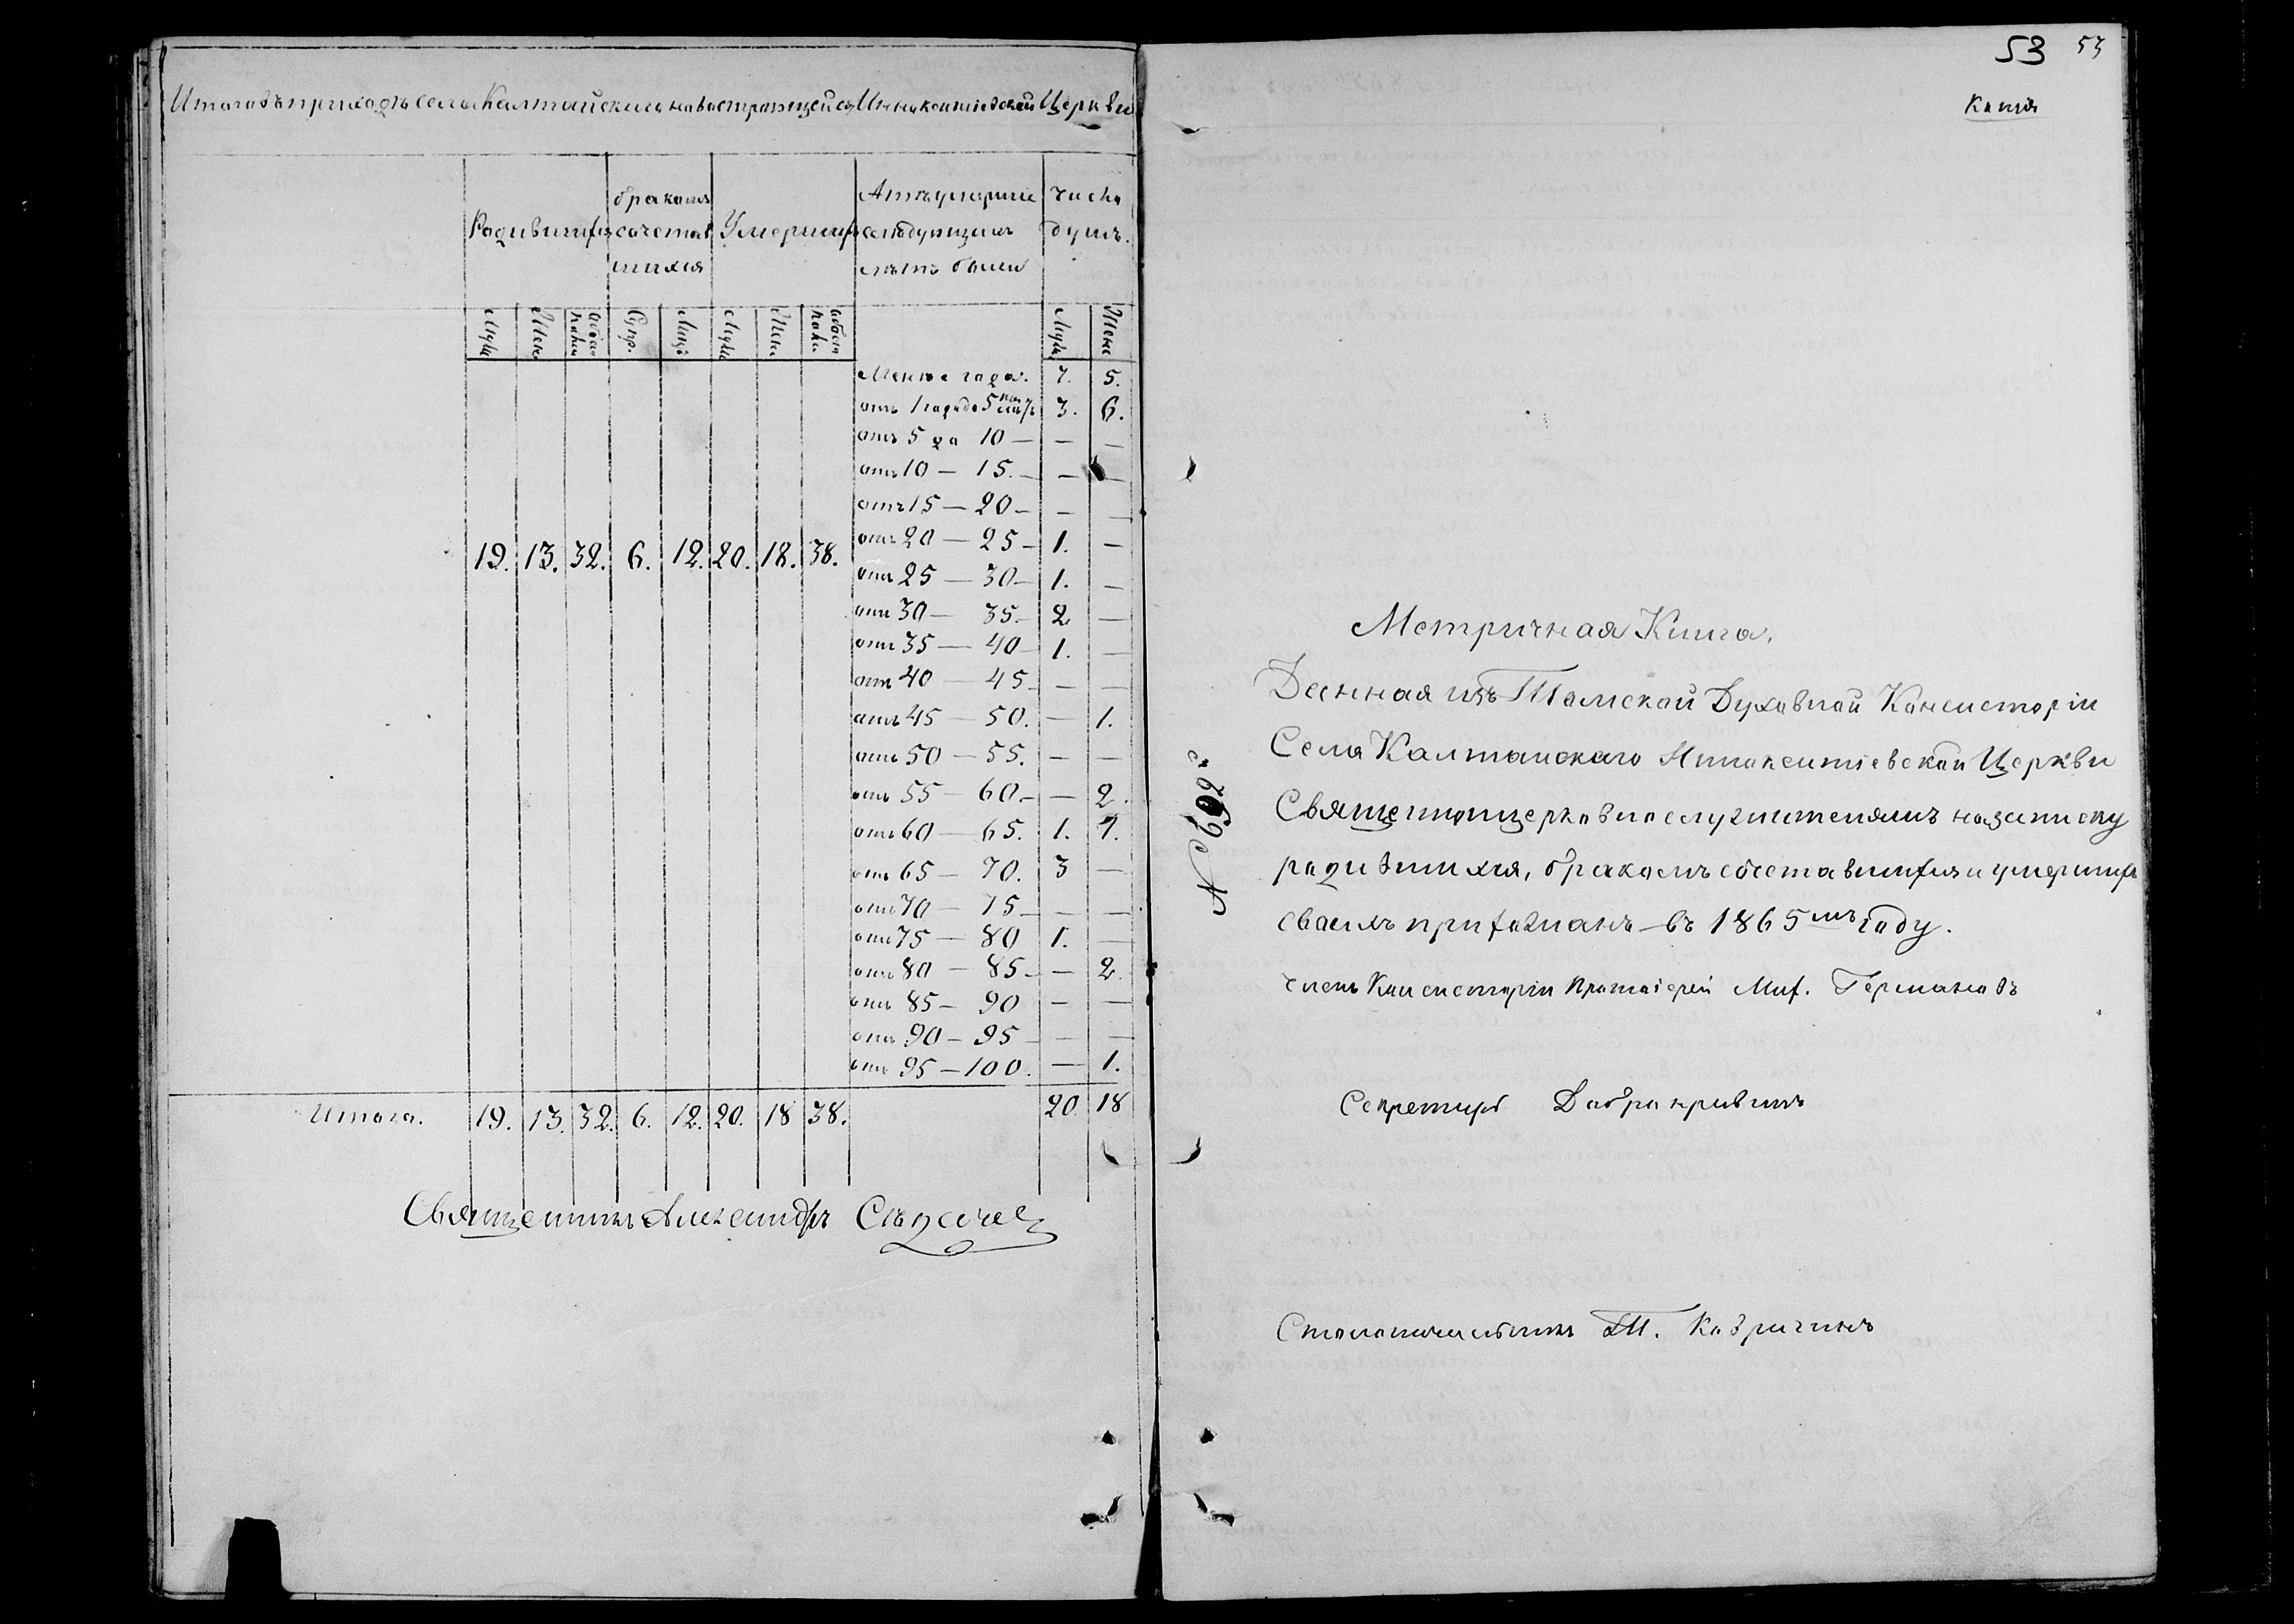 Итого въ приходѣ села Калтайскаго новостроющейся Иннокентіевской Церкви
Родившихся
бракомъ сочетавшихся
Умершихъ
А т умершіе слѣдующихъ лѣтъ были
число душъ.
Муж Жен Обоег пола Супр. Лицъ Муж Жен обоег пола Муж Жен
Менѣе года. 7. 5.
отъ 1 года до 5 3. 6.
отъ 5 до 10 — — —
отъ 10 — 15. — — —
отъ 15 — 20 — — —
отъ 20 — 25 — 1. —
отъ 25 — 30 — 1. —
отъ 30 — 35 — 2 —
отъ 35 — 40 — 1. —
отъ 40 — 45 — — —
отъ 45 — 50. — 1.
отъ 50 — 55. — —
отъ 55 — 60. — — 2.
отъ 60 — 65. 1. 1.
отъ 65 — 70. 3 —
отъ 70 — 75 — — —
отъ 75 — 80 1. —
отъ 80 — 85 — — 2.
отъ 85 — 90 — —
отъ 90 — 95 — — —
отъ 95 — 100. — 1.
19. 13. 32. 6. 12. 20. 18. 38.
Итого. 19. 13. 32. 6. 12. 20. 18 38. 20. 18
Священникъ Александръ
53 53
Копія
Метричная Книга,
Данная изъ Томской Духовной Консисторіи
Села Калтайскаго Иннокентіевской Церкви
Священноцерковнослужителямъ на записку
родившихся, бракомъ сочетавшихся и умершихъ
своихъ прихожанъ — въ 1865мъ году.
Членъ Консисторіи Протоіерей Мих. Германовъ
Секретарь Доброкривинъ
Столоначальникъ Т.